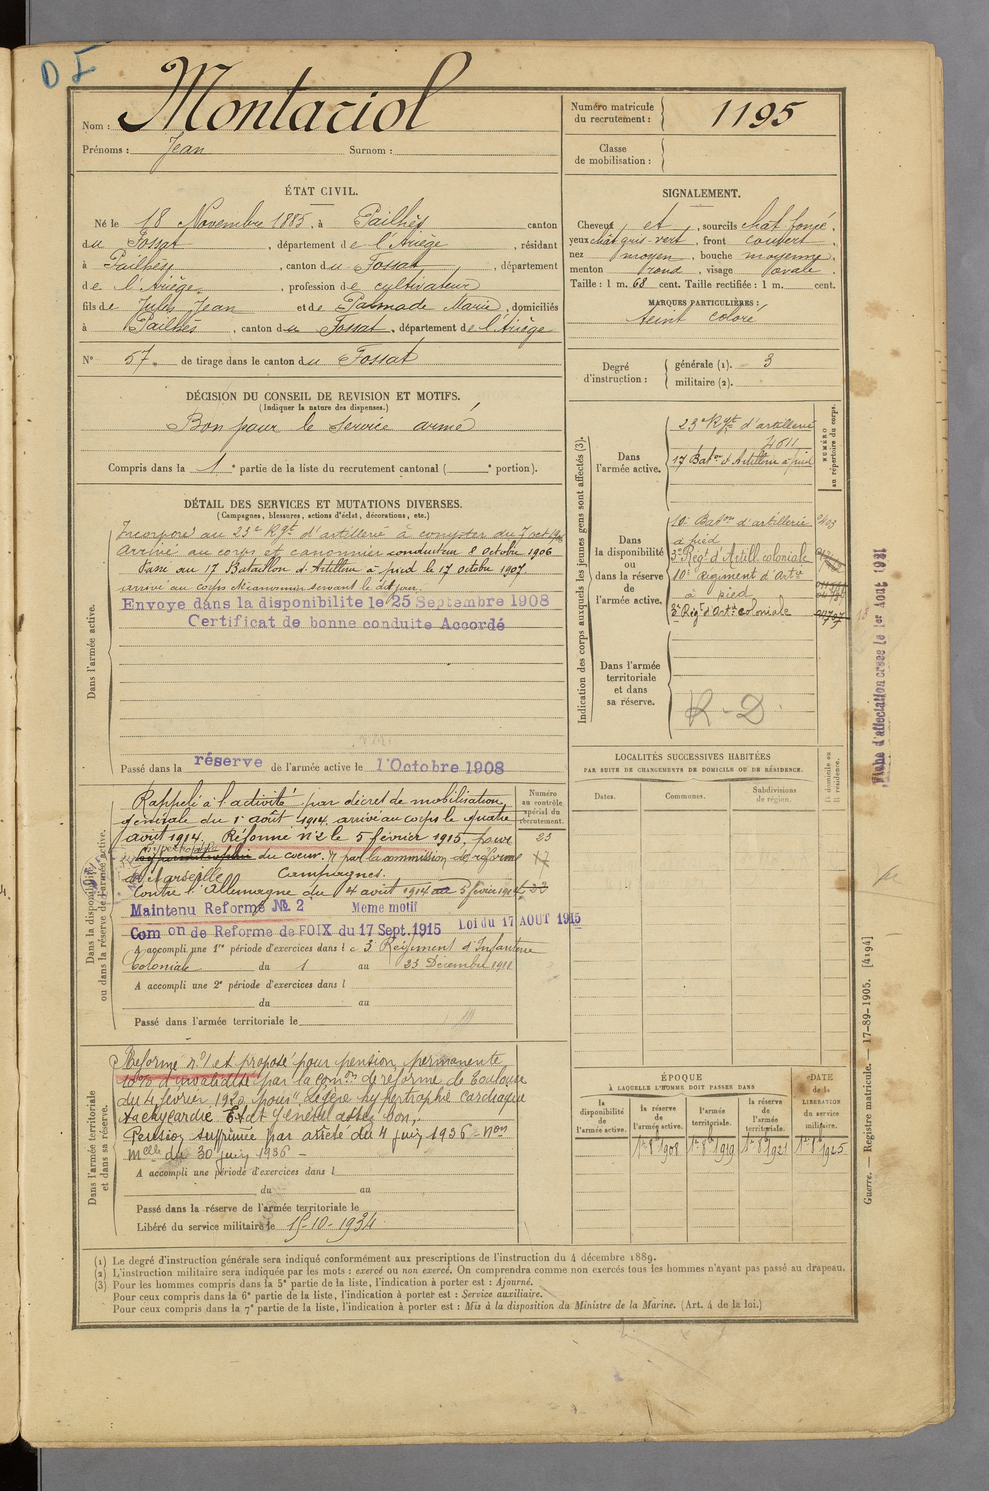 DF
Nom : Montariol
Prénoms : Jean Surnom :
Numéro matricule du recrutement : 1195
Classe de mobilisation :
ÉTAT CIVIL.
Né le 18 Novembre 1885, à Pailhès canton
du Fossat, département de l'Ariège, résidant
à Pailhès, canton du Fossat, département
de l'Ariège, profession de cultivateur
fils de Jules Jean et de Palmade Marie, domiciliés
à Pailhès, canton du Fossat, département de l'Ariège
N° 57. de tirage dans le canton du Fossat
SIGNALEMENT.
Cheveux et, sourcils chât foncé,
yeux chât gris-vert, front couvert,
nez moyen, bouche moyenne,
menton rond, visage ovale.
Taille : 1 m. 68 cent. Taille rectifiée : 1 m. cent.
MARQUES PARTICULIÈRES :
teint coloré
Degré d'instruction :
générale (1). 3
militaire (2).
DÉCISION DU CONSEIL DE REVISION ET MOTIFS.
(Indiquer la nature des dispenses.)
Bon pour le service armé
Compris dans la 1e partie de la liste du recrutement cantonal ( e portion).
DÉTAIL DES SERVICES ET MUTATIONS DIVERSES.
(Campagnes, blessures, actions d'éclat, décorations, etc.)
Dans l'armée active.
Incorporé au 23e Rgt d'artillerie à compter du 7 oct 1906
arrivé au corps et canonnier conducteur 8 octobre 1906
Passé au 17 Bataillon d'Artillerie à pied le 17 octobre 1907
arrivé au corps et canonnier servant le dit jour.
Envoye dans la disponibilite le 25 Septembre 1908
Certificat de bonne conduite Accordé
Passé dans la réserve de l'armée active le 1 Octobre 1908
Indication des corps auxquels les jeunes gens sont affectés (3).
NUMÉRO au répertoire du corps.
Dans l'armée active.
23e Rgt d'artillerie
4611
17 Baton d'Artillerie à pied
Dans la disponibilité ou dans la réserve de l'armée active.
10e Baton d'artillerie
à pied
3e Regt d'Artill. coloniale
10e Régiment d'Artie
à pied
3e Regt d'Artie coloniale
Dans l'armée territoriale et dans sa réserve.
R-D
Fiche d'affectation créée le 1er Aout 1931
Dans la disponibilité ou dans la réserve de l'armée active.
Numéro au contrôle spécial du recrutement.
Rappelé à l'activité par décret de mobilisation
générale du 1er août 1914, arrivé au corps le quatre
août 1914. Réformé n°2 le 5 février 1915, pour 23
hypertrophie du coeur. par la commission de réforme 17
de Marseille Campagnes.
Contre l'Allemagne du 4 août 1914 au 5 février 1915 23
Maintenu Reformé N° 2 Meme motif
Com on de Reforme de FOIX du 17 Sept. 1915 Loi du 17 AOUT 1915
A accompli une 1re période d'exercices dans le 3e Régiment d'Infanterie
Coloniale du 1 au 23 Décembre 1911
A accompli une 2e période d'exercices dans l
du au
Passé dans l'armée territoriale le
LOCALITÉS SUCCESSIVES HABITÉES
PAR SUITE DE CHANGEMENTS DE DOMICILE OU DE RÉSIDENCE.
Dates. Communes. Subdivisions de région. D domicile ou R résidence.
Dans l'armée territoriale et dans sa réserve.
Réforme n°1 et proposé pour pension permanente
10% d'invalidité par la comon de réforme de Toulouse
du 4 février 1920 pour légère hypertrophie cardiaque
tachycardie Etat général assez bon.
Pension supprimée par arrêté du 4 juin 1936 - Non
melle du 30 juin 1936 -
A accompli une période d'exercices dans l
du au
Passé dans la réserve de l'armée territoriale le
Libéré du service militaire le 15-10-1934
ÉPOQUE
À LAQUELLE L'HOMME DOIT PASSER DANS
la disponibilité de l'armée active.
la réserve de l'armée active.
l'armée territoriale.
la réserve de l'armée territoriale.
DATE de la LIBÉRATION du service militaire.
1er 8b 1908 1er 8b 1919 1er 8b 1921 1er 8b 1925
(1) Le degré d'instruction générale sera indiqué conformément aux prescriptions de l'instruction du 4 décembre 1889.
(2) L'instruction militaire sera indiquée par les mots : exercé ou non exercé. On comprendra comme non exercés tous les hommes n'ayant pas passé au drapeau.
(3) Pour les hommes compris dans la 5e partie de la liste, l'indication à porter est : Ajourné.
Pour ceux compris dans la 6e partie de la liste, l'indication à porter est : Service auxiliaire.
Pour ceux compris dans la 7e partie de la liste, l'indication à porter est : Mis à la disposition du Ministre de la Marine. (Art. 4 de la loi.)
Guerre. — Registre matricule. — 17-89-1905. [4194]